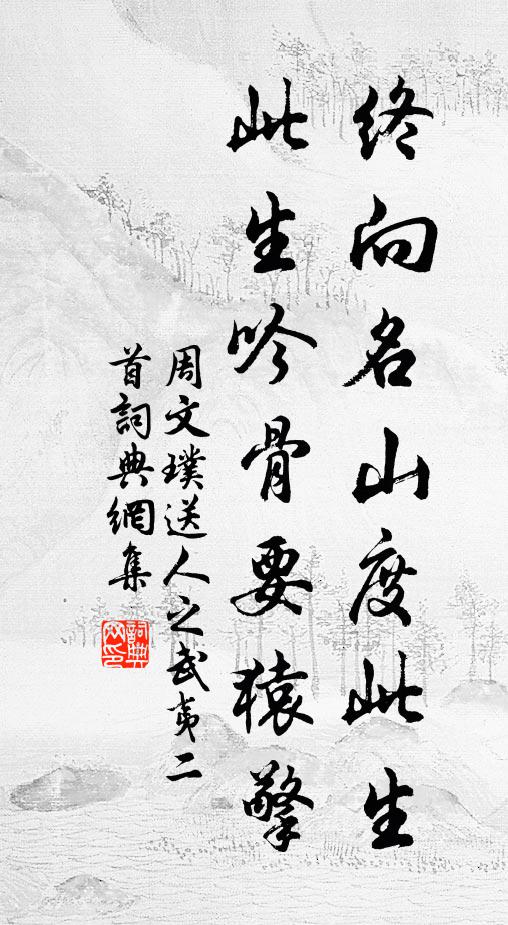 終向名山度此生
此生吟骨要猿擎
周文璞送人之武夷二
首詞典網集
詞典网印